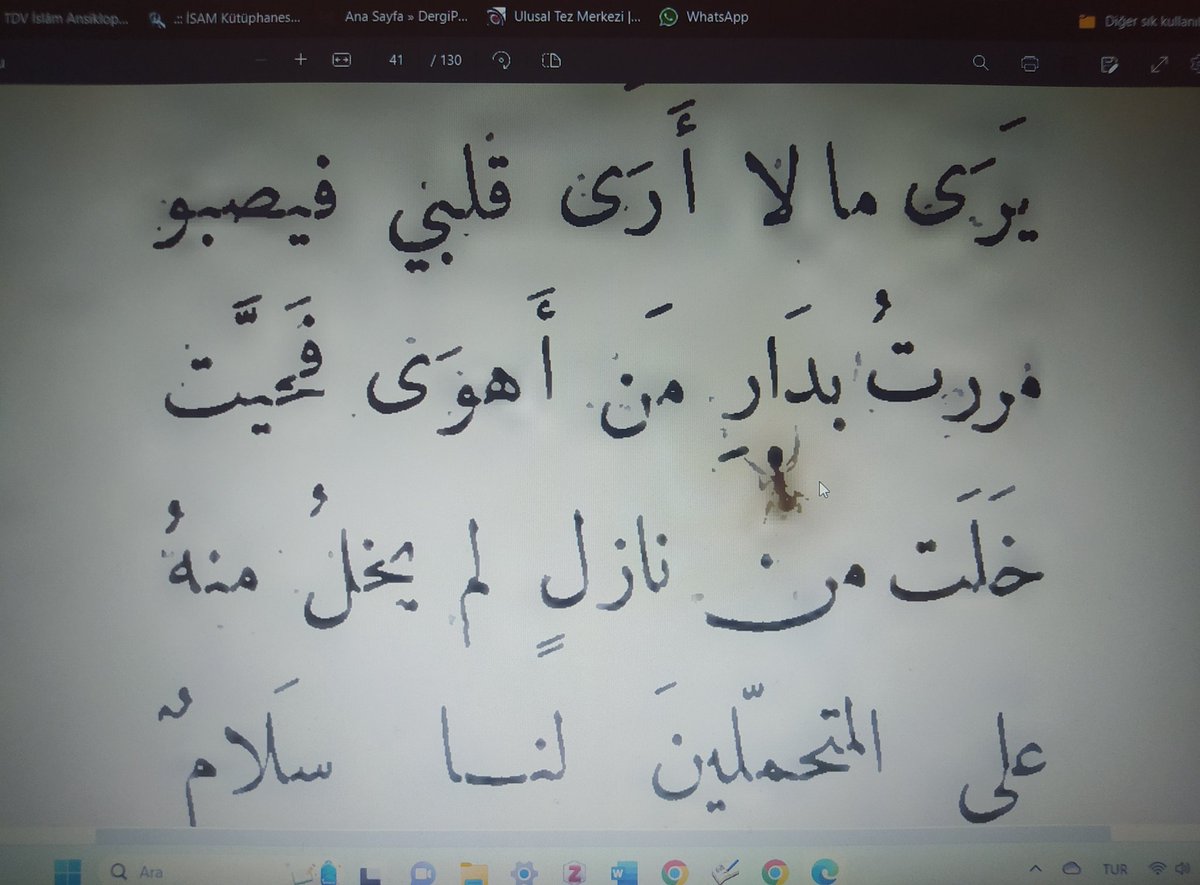 TDV İslâm Ansiklop... .:: İSAM Kütüphanes... Ana Sayfa » DergiP... Ulusal Tez Merkezi |... WhatsApp Diğer sık kullanıl
41 / 130
يرَى ما لا أَرَى قلبي فيصبو
مررتُ بدَارِ مَن أَهوَى فَحيَّت
خَلَت من نازلٍ لم يخلُ منهُ
على المتحمّلينَ لنا سلَامٌ
Ara TUR